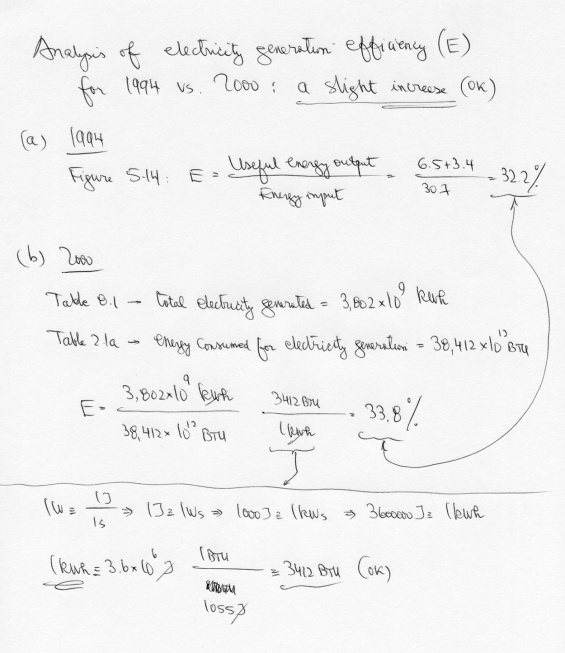 Analysis of electricity generation efficiency (E)
for 1994 vs. 2000 : a slight increase (OK)
(a) 1994
Figure 5.14 : E = Useful energy output / Energy input = 6.5+3.4 / 30.7 = 32.2%
(b) 2000
Table 8.1 → total electricity generated = 3,802×10^9 kWh
Table 2.1a → energy consumed for electricity generation = 38,412×10^12 BTU
E = 3,802×10^9 kWh / 38,412×10^12 BTU 3412 BTU / 1 kWh = 33.8%
1W ≡ 1J / 1s ⇒ 1J ≡ 1Ws ⇒ 1000J ≡ 1kWs ⇒ 3600000J ≡ 1kWh
1kWh ≡ 3.6×10^6 J 1BTU / 1055J ≡ 3412 BTU (OK)